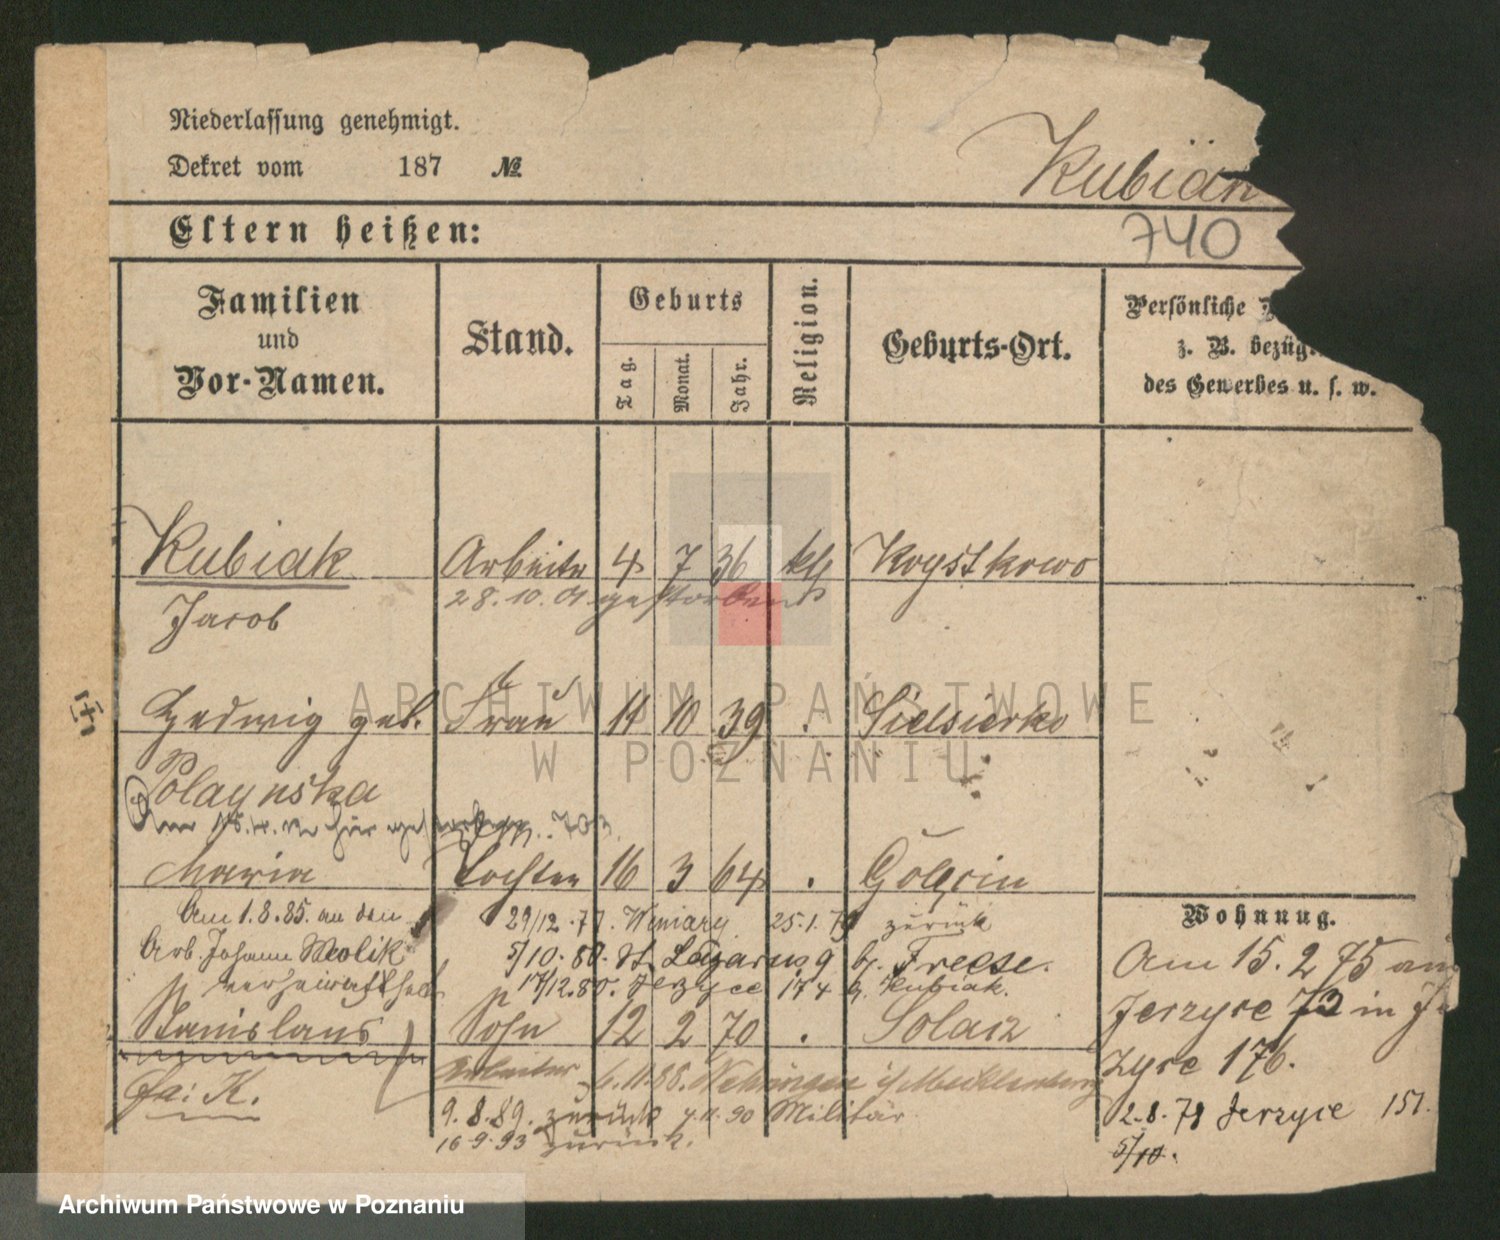 Niederlassung genehmigt.
Dekret vom 187 №
Kubian
740
Eltern heißen:
Familien und Vor-Namen.
Stand.
Geburts
Tag.
Monat.
Jahr.
Religion.
Geburts-Ort.
Persönliche
z. B. bezüg
des Gewerbes u. s. w.
Kubiak Arbeiter 4 7 36 kth
28.10.01 gestorben
Jacob
Hedwig geb. Frau 11 10 39 .
Polaynska
Maria Tochter 16 3 64 . Golęcin
Am 1.8.85. an den 29/12.77. Winiary 25.1.79 zurück
Arb. Johann Wolik 5/10.80. St. Lazarus 9 b. Freese.
verheirathet 17/12.80. Jerzyce 174 b. Kubiak.
Stanislaus Sohn 12 2 70 . Solacz
fa: K.
Arbeiter 6.11.88. i/Mecklenburg
9.8.89. zurück 4.11.90 Militär
16.9.93 zurück.
Wohnung.
Am 15.2 75 an
Jerzyce 72 in Je
zyce 176.
2.8.78 Jerzyce 151.
5/10.
ARCHIWUM PAŃSTWOWE
W POZNANIU
Archiwum Państwowe w Poznaniu